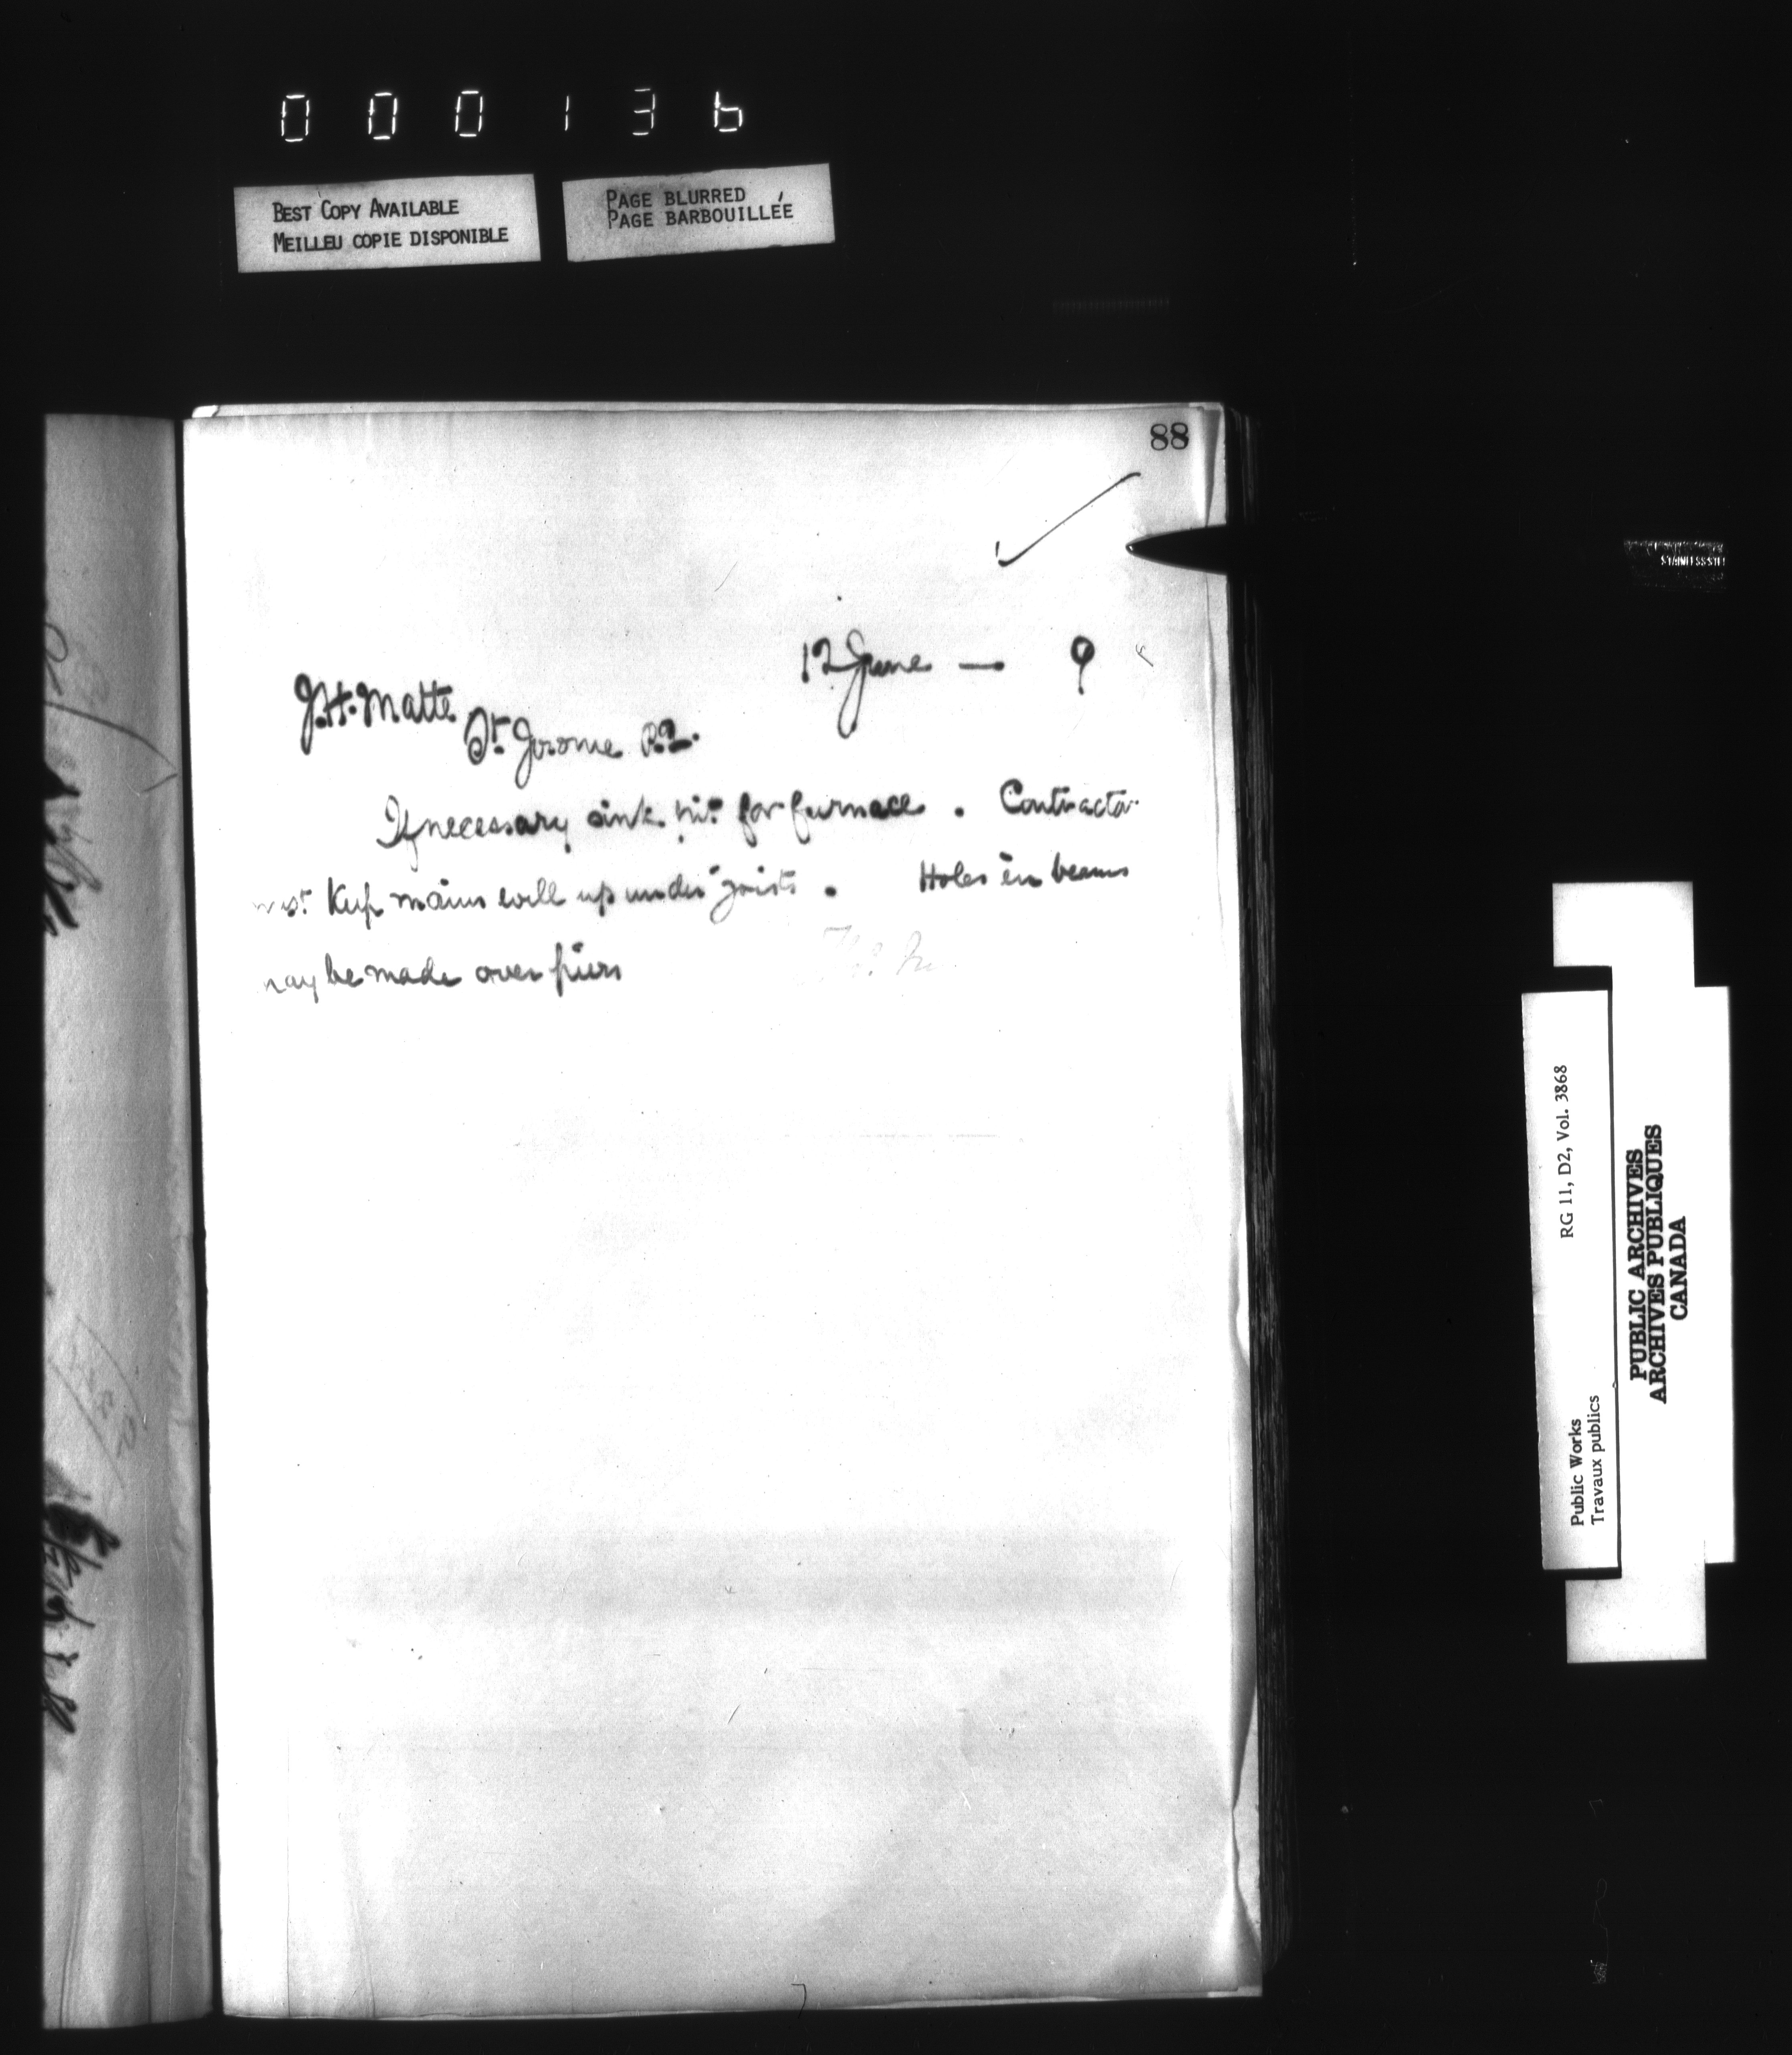 000136
BEST COPY AVAILABLE
MEILLEU COPIE DISPONIBLE
PAGE BLURRED
PAGE BARBOUILLÉE
88
12 June — 9
J.H. Matte
St Jerome P.Q.
If necessary sink pit for furnace. Contractor
must Keep mains well up under joists. Holes in beams
may be made over piers
STAINLESS STE
RG 11, D2, Vol. 3868
Public Works
Travaux publics
PUBLIC ARCHIVES
ARCHIVES PUBLIQUES
CANADA